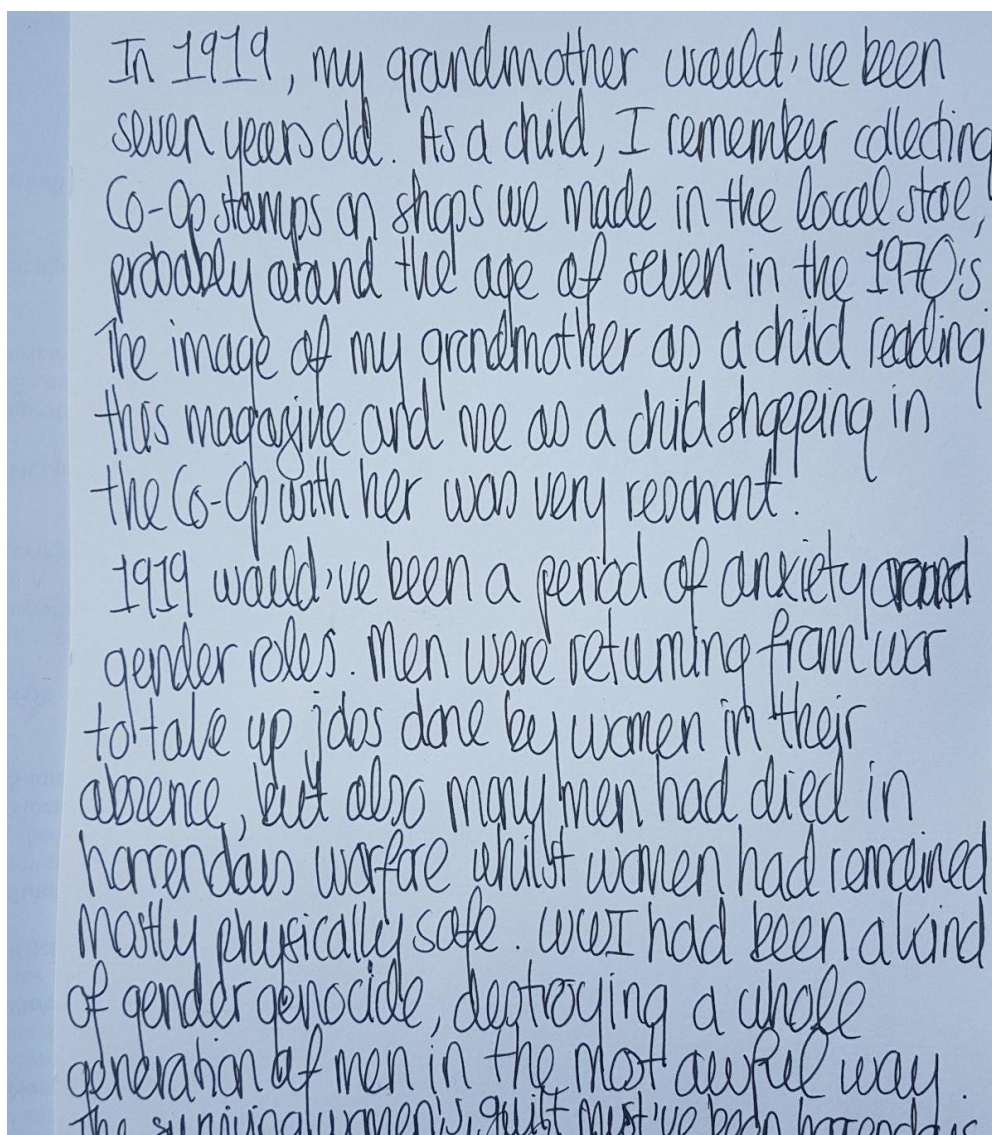 In 1919, my grandmother would've been
seven years old. As a child, I remember collecting
Co-Op stamps on shops we made in the local store,
probably around the age of seven in the 1970's
The image of my grandmother as a child reading
this magazine and me as a child shopping in
the Co-Op with her was very resonant.
1919 would've been a period of anxiety around
gender roles. Men were returning from war
to take up jobs done by women in their
absence, but also many men had died in
horrendous warfare whilst women had remained
mostly physically safe. WWI had been a kind
of gender genocide, destroying a whole
generation of men in the most awful way.
The surviving women's, guilt must've been horrendous